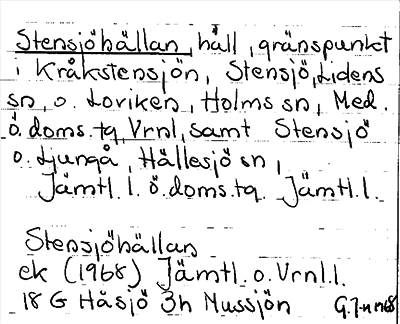 Stensjöhällan, häll, gränspunkt
i Kråkstensjön, Stensjö, Lidens
sn, o. Loviken, Holms sn, Med.
ö. doms. tg, Vrnl, samt Stensjö
o. Ljungå, Hällesjö sn,
Jämtl. l. ö. doms. tg. Jämtl. l.
Stensjöhällan
ek (1968) Jämtl. o. Vrnl. l.
18 G Håsjö 3h Mussjön